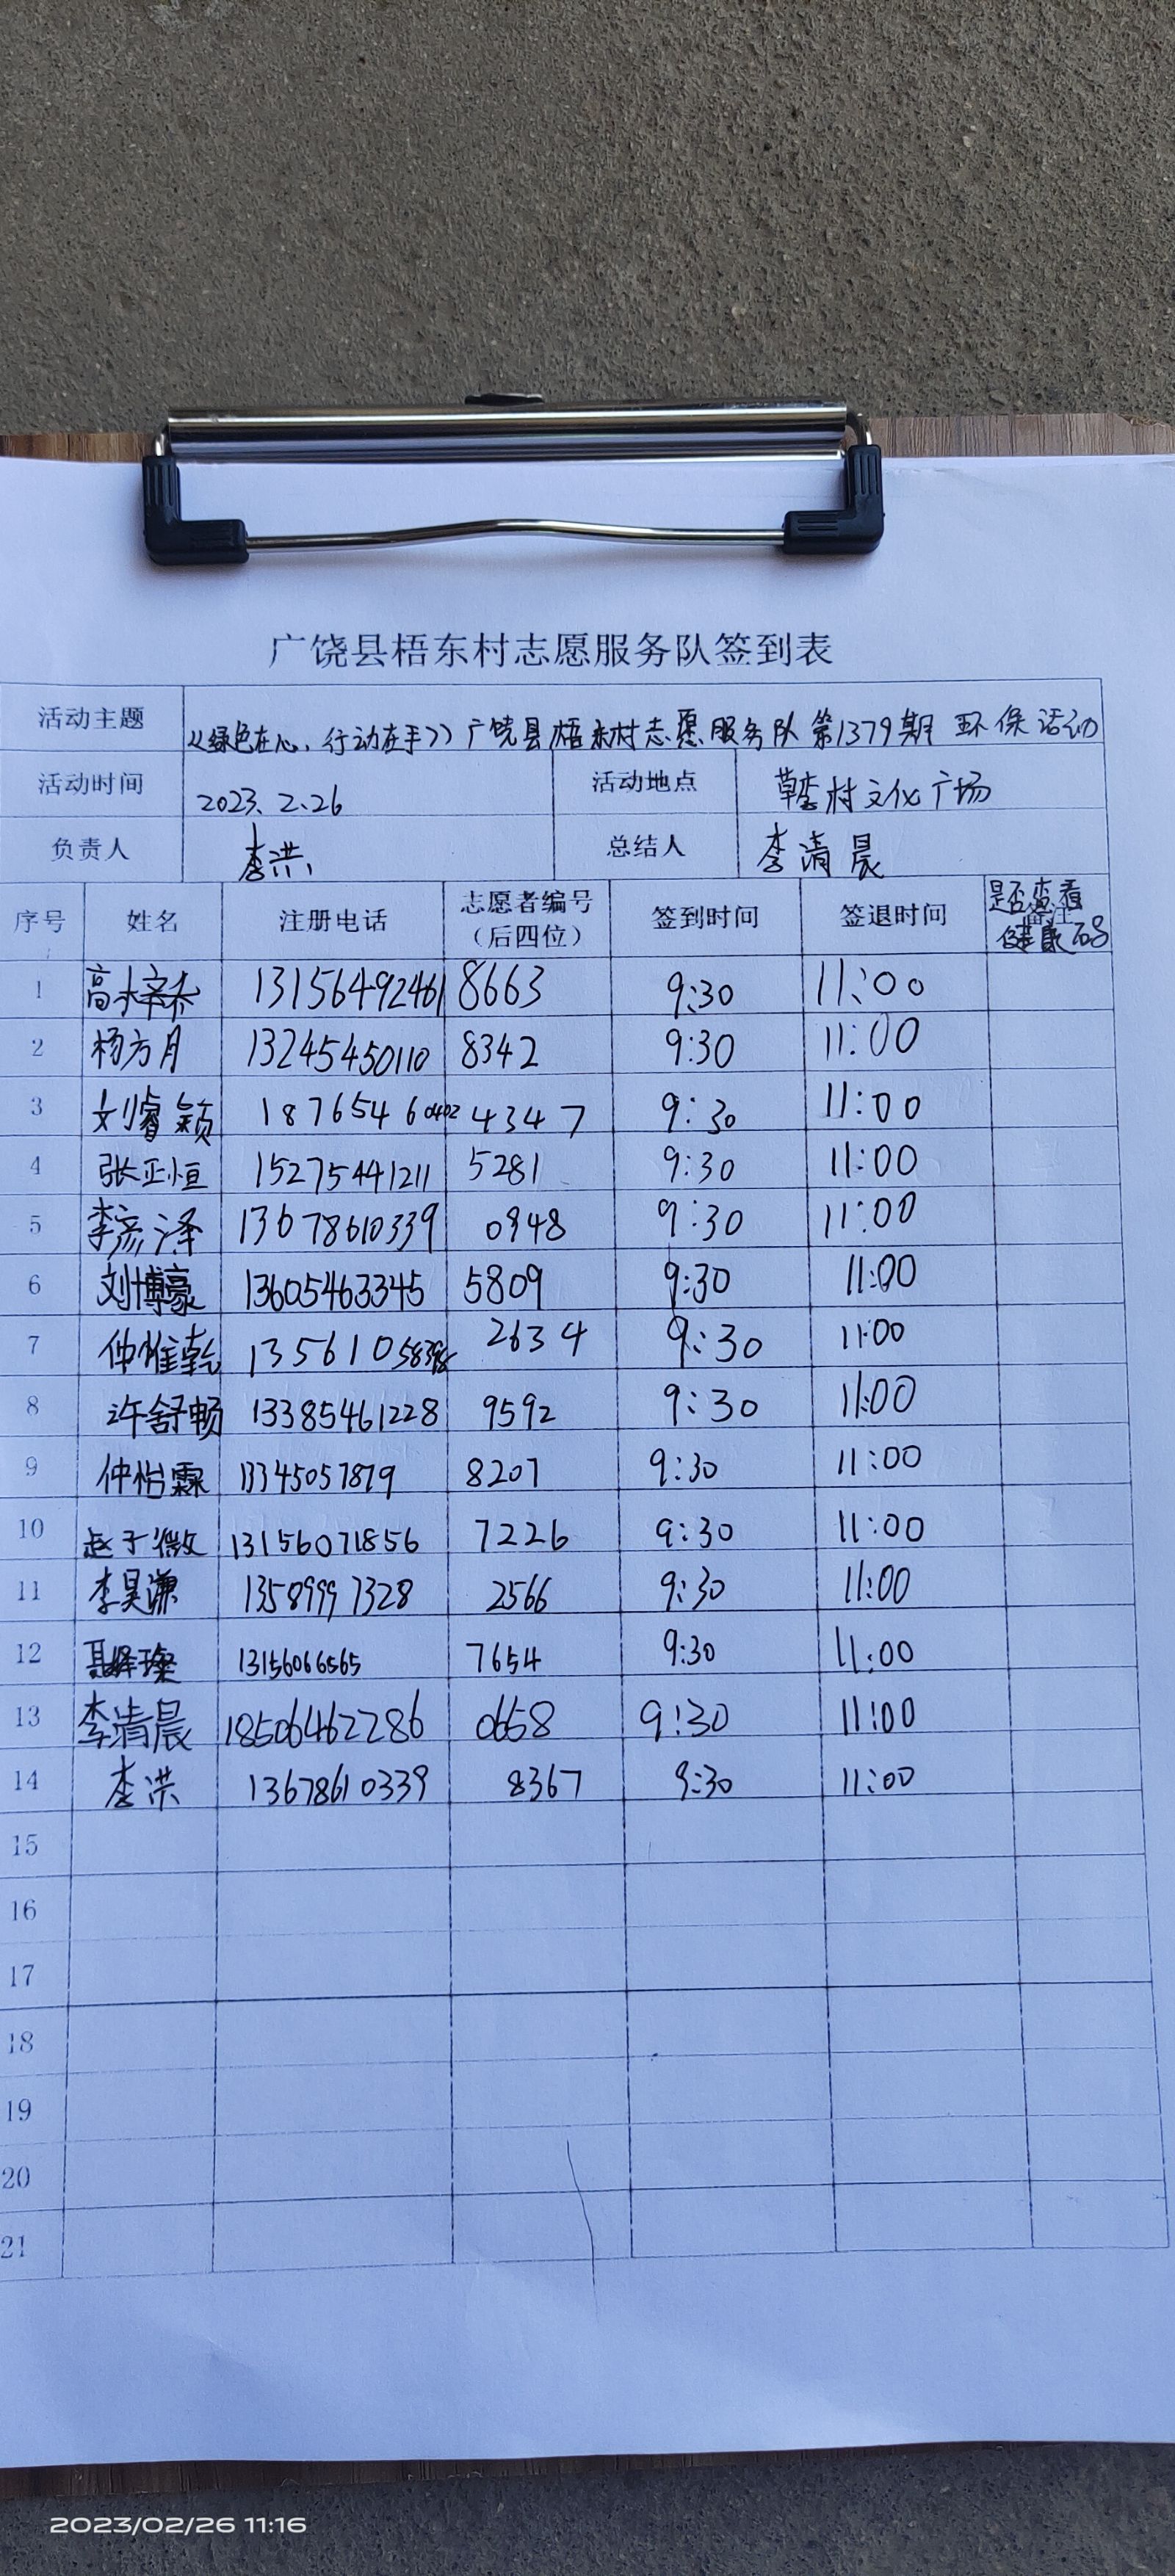 广饶县梧东村志愿服务队签到表
活动主题 《绿色在心、行动在手》广饶县梧东村志愿服务队第1379期 环保活动
活动时间 2023.2.26 活动地点 草李村文化广场
负责人 李洪 总结人 李清晨
序号 姓名 注册电话 志愿者编号（后四位） 签到时间 签退时间 是否查看健康码
1 高 13156492461 8663 9:30 11:00
2 杨方月 13245450110 8342 9:30 11:00
3 刘睿颖 18765460402 4347 9:30 11:00
4 张正恒 15275441211 5281 9:30 11:00
5 李彦泽 13678610339 0948 9:30 11:00
6 刘博豪 13605463345 5809 9:30 11:00
7 仲惟乾 2634 9:30 11:00
8 许舒畅 13385461228 9592 9:30 11:00
9 仲怡霖 13345057879 8207 9:30 11:00
10 赵于微 13156071856 7226 9:30 11:00
11 李昊谦 13589997328 2566 9:30 11:00
12 13156066565 7654 9:30 11:00
13 李清晨 18506462286 0658 9:30 11:00
14 李洪 13678610339 8367 9:30 11:00
15
16
17
18
19
20
21
2023/02/26 11:16